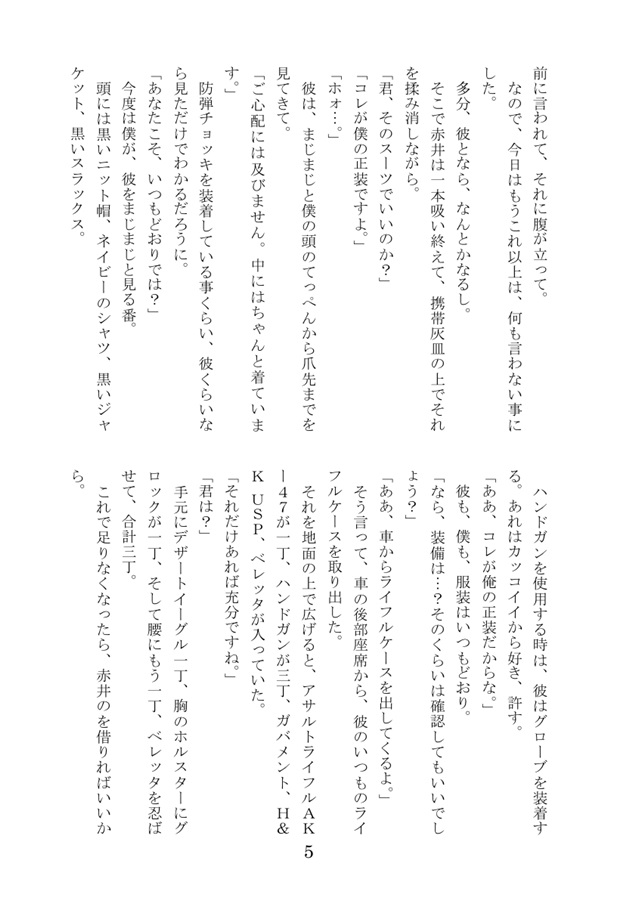 前に言われて、それに腹が立って。
なので、今日はもうこれ以上は、何も言わない事に
した。
多分、彼となら、なんとかなるし。
そこで赤井は一本吸い終えて、携帯灰皿の上でそれ
を揉み消しながら。
「君、そのスーツでいいのか？」
「コレが僕の正装ですよ。」
「ホォ…。」
彼は、まじまじと僕の頭のてっぺんから爪先までを
見てきて。
「ご心配には及びません。中にはちゃんと着ていま
す。」
防弾チョッキを装着している事くらい、彼くらいな
ら見ただけでわかるだろうに。
「あなたこそ、いつもどおりでは？」
今度は僕が、彼をまじまじと見る番。
頭には黒いニット帽、ネイビーのシャツ、黒いジャ
ケット、黒いスラックス。
ハンドガンを使用する時は、彼はグローブを装着す
る。あれはカッコイイから好き、許す。
「ああ、コレが俺の正装だからな。」
彼も、僕も、服装はいつもどおり。
「なら、装備は…？そのくらいは確認してもいいでし
ょう？」
「ああ、車からライフルケースを出してくるよ。」
そう言って、車の後部座席から、彼のいつものライ
フルケースを取り出した。
それを地面の上で広げると、アサルトライフルＡＫ
ー４７が一丁、ハンドガンが三丁、ガバメント、Ｈ＆
Ｋ ＵＳＰ、ベレッタが入っていた。
「それだけあれば充分ですね。」
「君は？」
手元にデザートイーグル一丁、胸のホルスターにグ
ロックが一丁、そして腰にもう一丁、ベレッタを忍ば
せて、合計三丁。
これで足りなくなったら、赤井のを借りればいいか
ら。
5